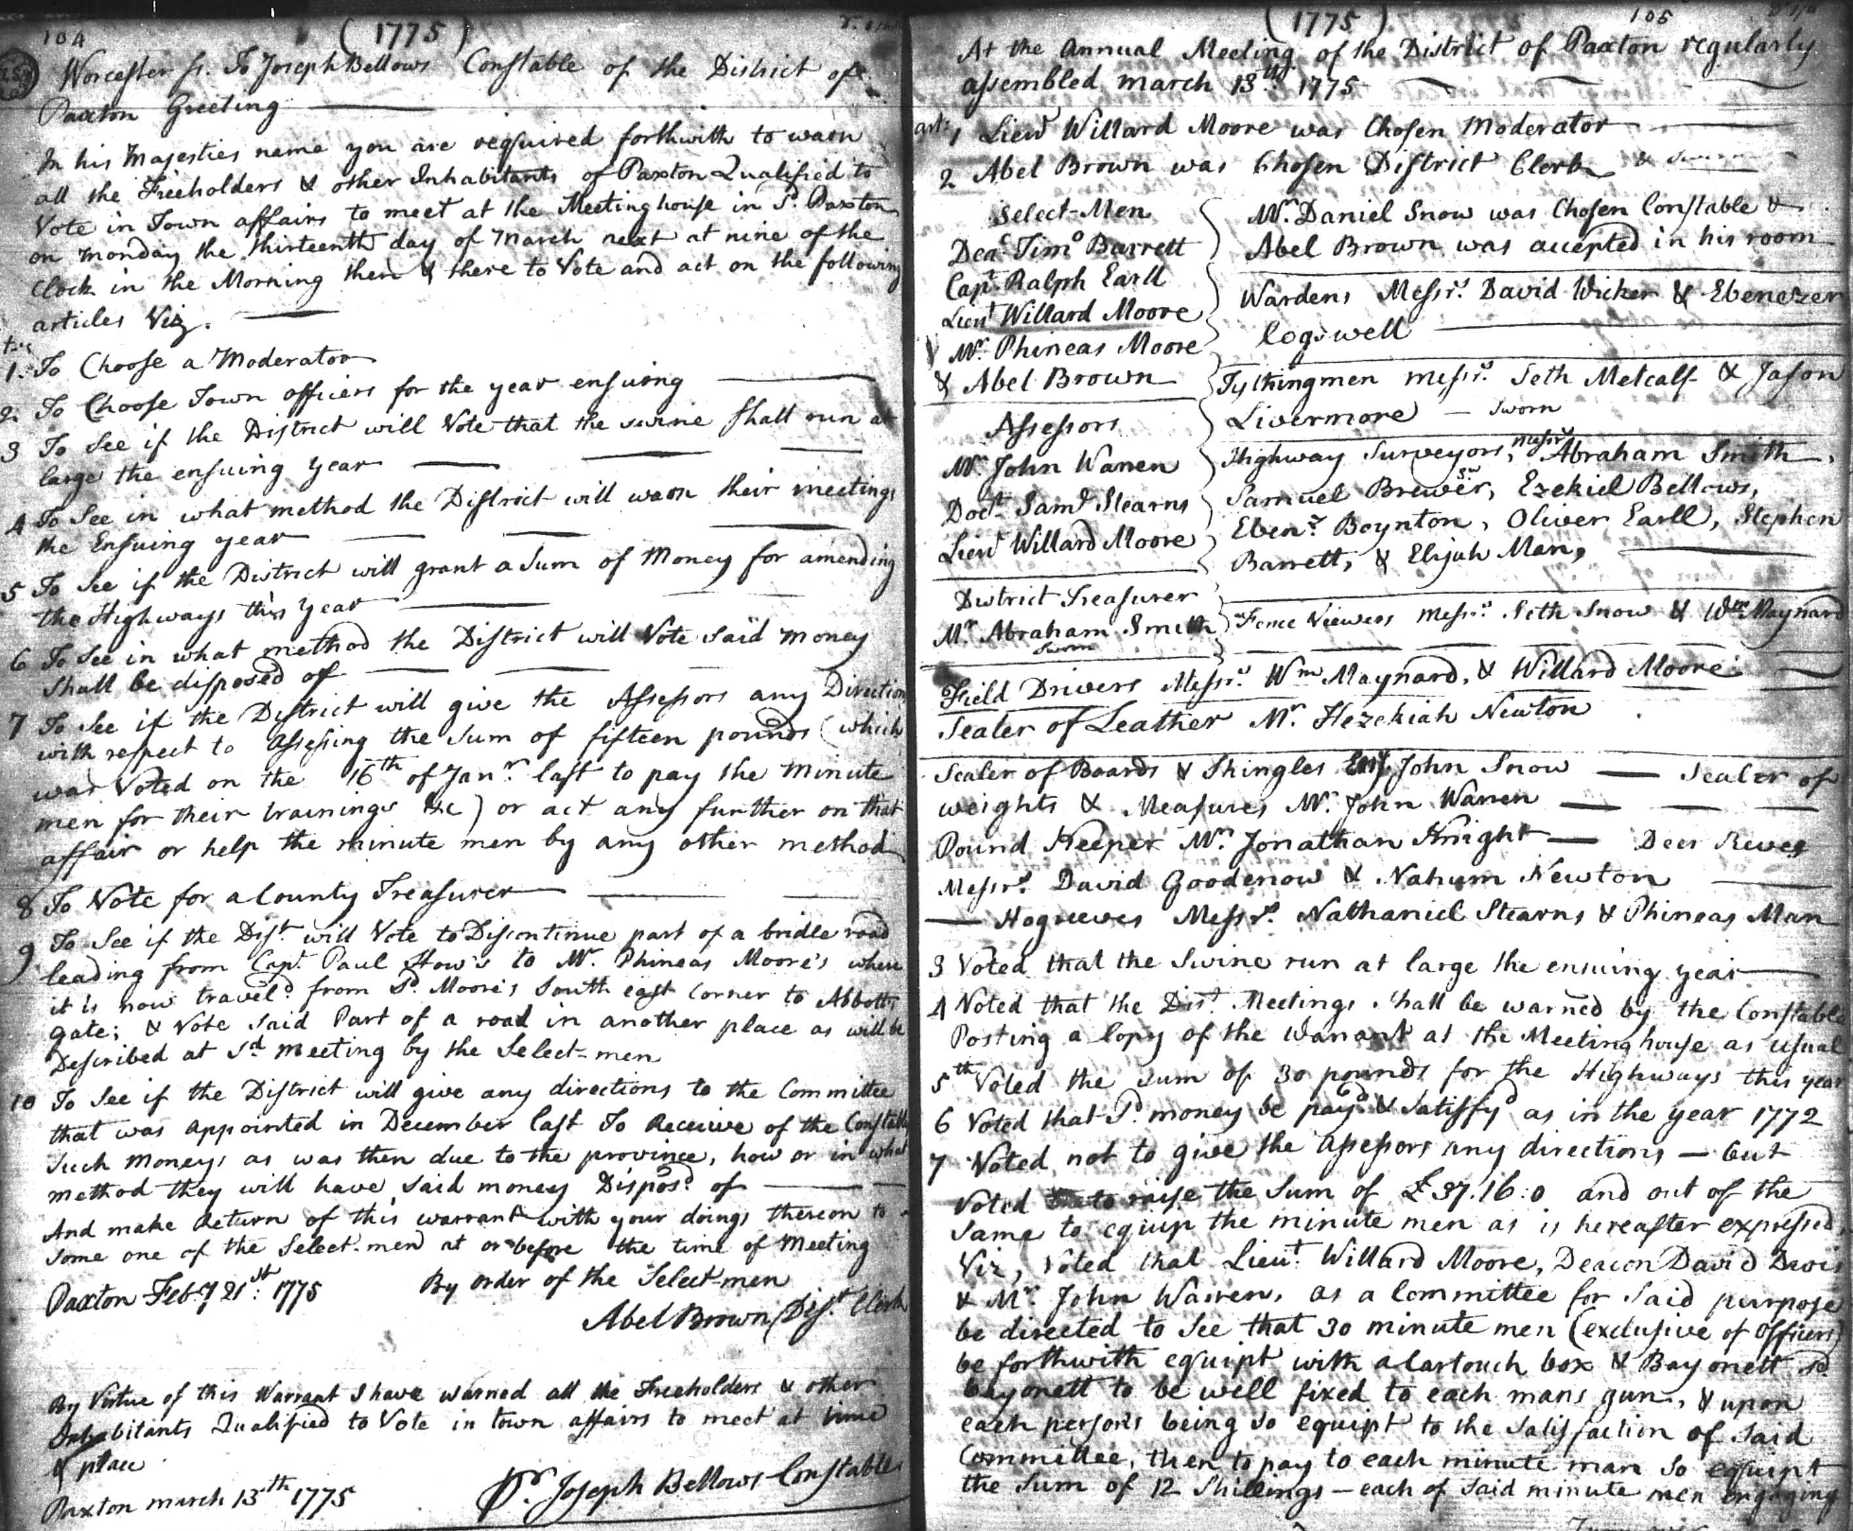 104
(1775)
Worcester ss. To Joseph Bellows Constable of the District of
Paxton Greeting
In his Majesties name you are required forthwith to warn
all the Freeholders & other Inhabitants of Paxton Qualified to
Vote in Town affairs to meet at the Meeting house in sd. Paxton
on monday the thirteenth day of March next at nine of the
Clock in the Morning then & there to Vote and act on the following
articles Viz.
1. To Choose a Moderator
2. To Choose Town officers for the year ensuing
3 To See if the District will Vote that the swine shall run at
large the ensuing Year
4 To See in what method the District will warn their meetings
the Ensuing year
5 To See if the District will grant a Sum of Money for amending
the Highways this Year
6 To See in what method the District will Vote said money
shall be disposed of
7 To See if the District will give the Assessors any Direction
with respect to assessing the Sum of fifteen pounds (which
was Voted on the 16th of Janr. last to pay the minute
men for their trainings &c) or act any further on that
affair or help the minute men by any other method
8 To Vote for a County Treasurer
9 To See if the Dist. will Vote to Discontinue part of a bridle road
leading from Capt. Paul How's to Mr. Phineas Moore's where
it is now traveld. from sd. Moore's South east Corner to Abbotts
gate; & Vote said Part of a road in another place as will be
Described at sd meeting by the Select=men
10 To See if the District will give any directions to the Committee
that was appointed in December last To Receive of the Constable
such moneys as was then due to the province, how or in what
method they will have said money Disposd. of
And make Return of this warrant with your doings thereon to
some one of the Select=men at or before the time of Meeting
Paxton Feby 21st. 1775 By order of the Select=men
Abel Brown Dist. Clerk
By Virtue of this Warrant I have warned all the Freeholders & other
Inhabitants Qualified to Vote in town affairs to meet at time
& place
Paxton march 13th 1775 Pr. Joseph Bellows Constable
(1775) 105
At the Annual Meeting of the District of Paxton regularly
assembled march 13th. 1775
art. 1 Lieut Willard Moore was Chosen Moderator
2 Abel Brown was Chosen District Clerk &
Select=Men
Deac. Timo Barrett
Capt. Ralph Earll
Lieut Willard Moore
Mr. Phineas Moore
& Abel Brown
Assessors
Mr. John Warren
Doct. Saml Stearns
Lieut Willard Moore
District Treasurer
Mr. Abraham Smith
Sworn
Mr. Daniel Snow was Chosen Constable &
Abel Brown was accepted in his room
Wardens Messrs. David Wicker & Ebenezer
Cogswell
Tythingmen messrs. Seth Metcalf & Jason
Livermore - Sworn
Highway Surveyors, messrs Abraham Smith,
Samuel Brewer, Senr Ezekiel Bellows,
Ebenr. Boynton, Oliver Earll, Stephen
Barrett, & Elijah Man,
Fence Viewers Messrs. Seth Snow & Wm. Maynard
Field Drivers Messrs. Wm Maynard, & Willard Moore
Sealer of Leather Mr. Hezekiah Newton
Sealer of Boards & Shingles Ens. John Snow — Sealer of
weights & Measures Mr. John Warren
Pound Keeper Mr. Jonathan Knight — Deer Reves
Messrs. David Goodenow & Nahum Newton
Hogreeves Messrs. Nathaniel Stearns & Phineas Man
3 Voted that the Swine run at large the ensuing year
4 Voted that the Dist. Meetings shall be warned by the Constable
Posting a Copy of the warrant at the Meeting house as usual
5th Voted the sum of 30 pounds for the Highways this year
6 Voted that sd. money be payd. & Satisfyd as in the year 1772
7 Voted not to give the Assessors any directions — but
Voted to raise the Sum of £37.16:0 and out of the
same to equip the minute men as is hereafter expressed,
Viz, Voted that Lieut. Willard Moore, Deacon David Davis
& Mr. John Warren, as a Committee for said purpose
be directed to see that 30 minute men (exclusive of officers)
be forthwith equipt with a Cartouch box & Bayonett sd.
bayonett to be well fixed to each mans gun, & upon
each persons being so equipt to the satisfaction of said
Committee, then to pay to each minute man so equipt
the sum of 12 shillings — each of said minute men engaging